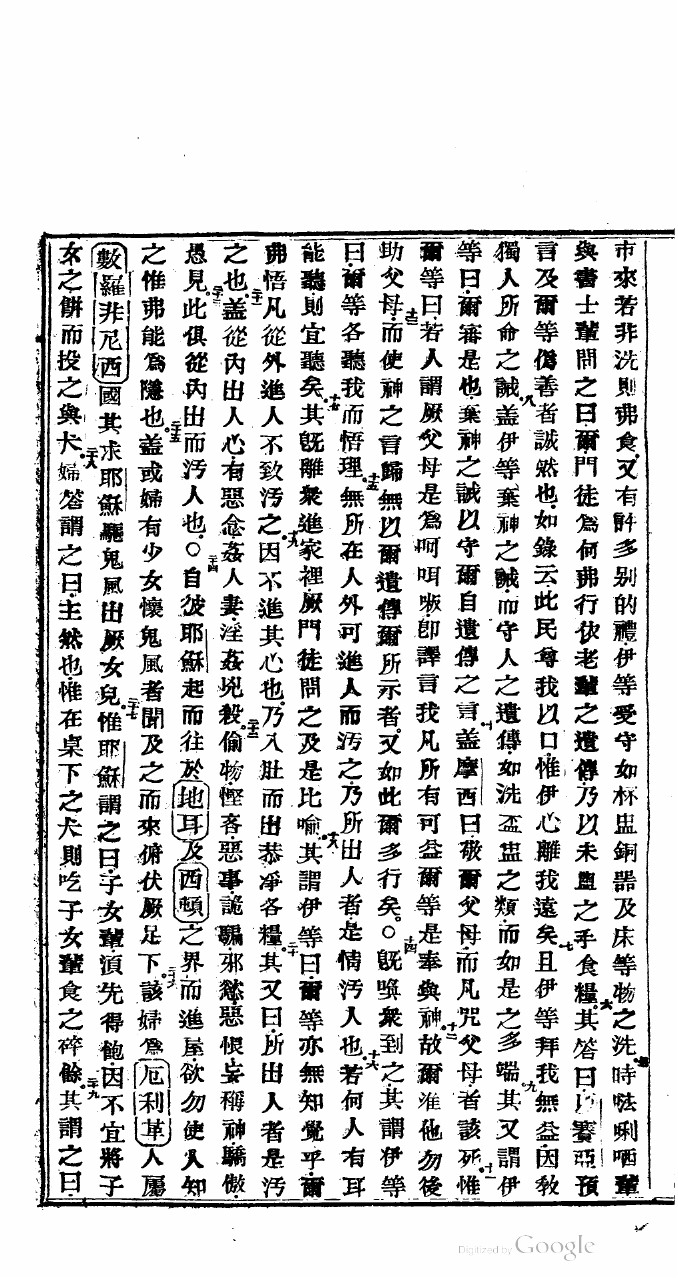 市來若非洗則弗食又有許多別的禮伊等受守如杯盅銅器及床等物之洗時㗭唎哂輩
與書士輩問之曰爾門徒為何弗行依老輩之遺傳乃以未盥之手食糧其答曰賽亞預
言及爾等偽善者誠然也如錄云此民尊我以口惟伊心離我遠矣且伊等拜我無益因教
獨人所命之誡蓋伊等棄神之誡而守人之遺傳如洗盃盅之類而如是之多端其又謂伊
等曰爾審是也棄神之誡以守爾自遺傳之言蓋摩西曰敬爾父母而凡咒父母者該死惟
爾等曰若人謂厥父母是為呵咡㕹即譯言我凡所有可益爾等是奉與神故爾准他勿後
助父母而使神之言歸無以爾遺傳爾所示者又如此爾多行矣○既喚衆到之其謂伊等
曰爾等各聽我而悟理無所在人外可進人而汚之乃所出人者是情汚人也若何人有耳
能聽則宜聽矣其既離衆進家裡厥門徒問之及是比喻其謂伊等曰爾等亦無知覺乎爾
弗悟凡從外進人不致汚之因不進其心也乃入肚而出恭凈各糧其又曰所出人者是汚
之也蓋從內出人心有惡念姦人妻淫姦兇殺偷物慳吝惡事詭騙邪慾惡恨妄稱神驕傲
愚見此俱從內出而汚人也○自彼耶穌起而往於地耳及西頓之界而進屋欲勿使人知
之惟弗能為隱也蓋或婦有少女懷鬼風者聞及之而來俯伏厥足下該婦為厄利革人屬
數羅非尼西國其求耶穌驅鬼風出厥女兒惟耶穌謂之曰子女輩須先得飽因不宜將子
女之餅而投之與犬婦答謂之曰主然也惟在桌下之犬則吃子女輩食之碎餘其謂之曰
五
六
七
八
九
十
十一
十二
十三
十四
十五
十六
十七
十八
十九
二十
二十一
二十二
二十三
二十四
二十五
二十六
二十七
二十八
二十九
Digitized by Google